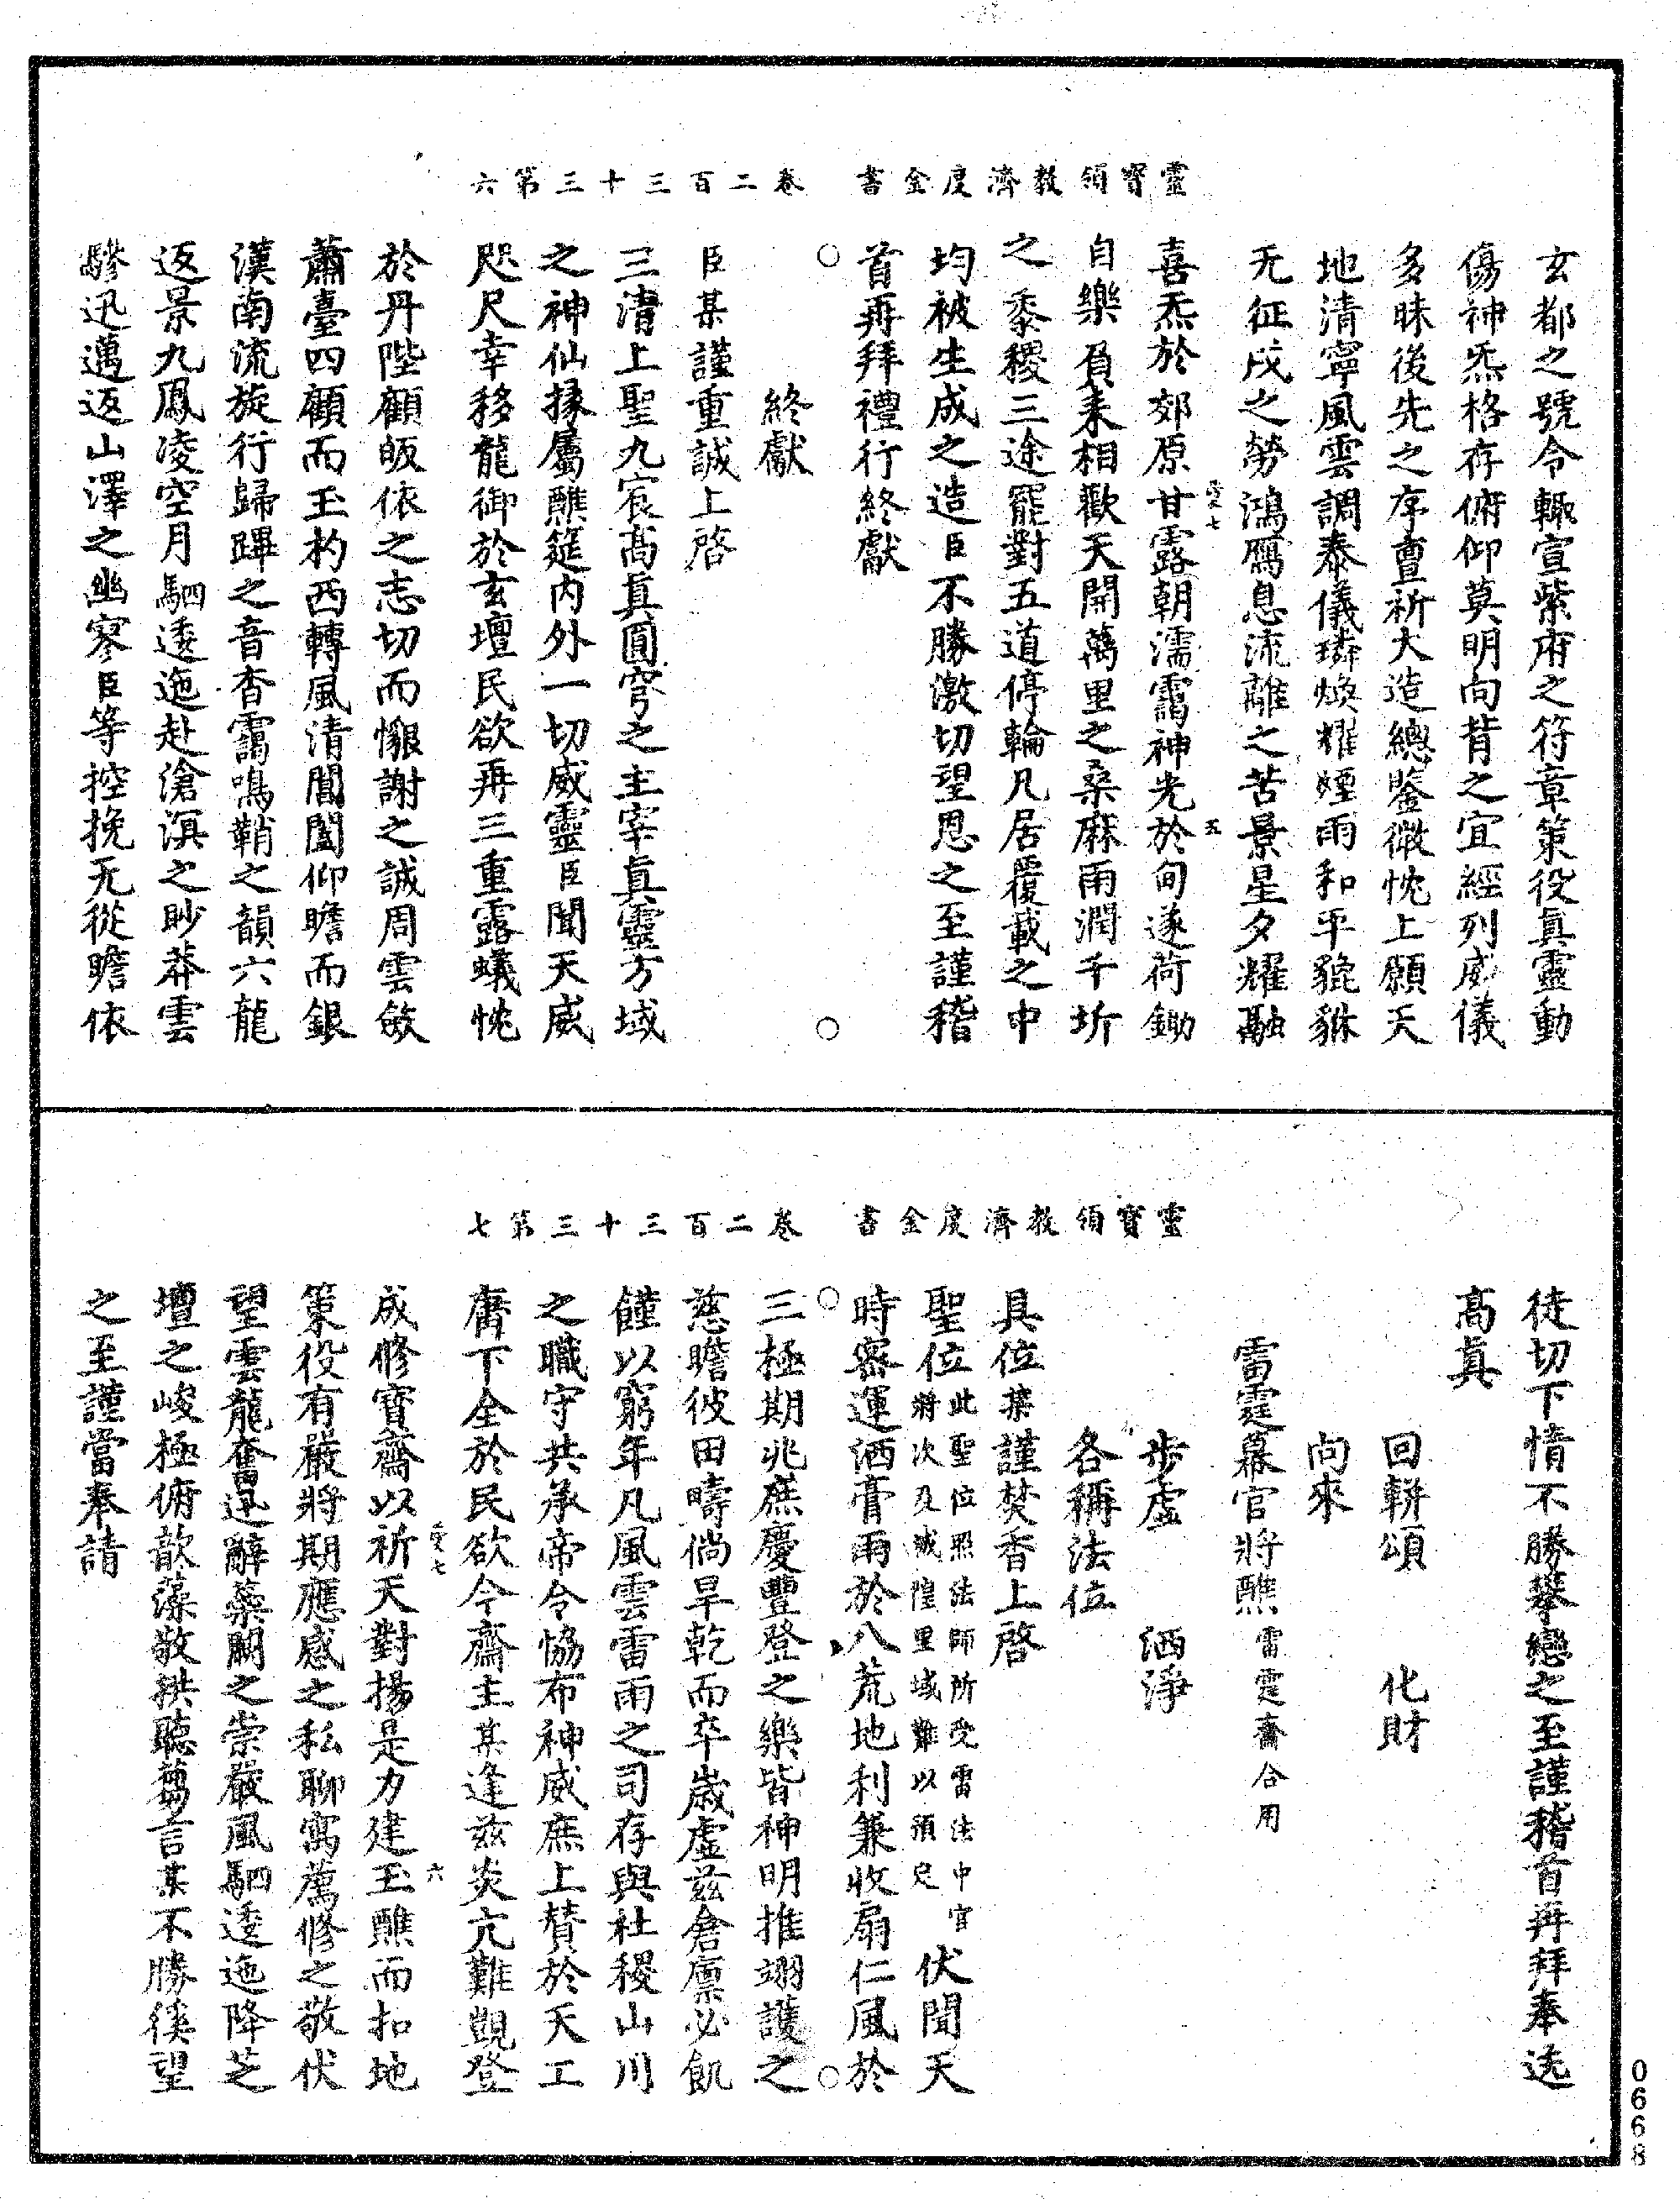 靈寶領教濟度金書 卷二百三十三第六
玄都之號令輙宣紫府之符章策役眞靈動
傷神炁格存俯仰莫明向背之宜經列威儀
多昧後先之序亶祈大造總鑒微忱上願天
地清寧風雲調泰儀璘煥耀煙雨和平貔貅
无征戍之勞鴻鴈息流離之苦景星夕耀融
喜炁於郊原甘露朝濡靄神光於甸遂荷鋤
自樂負耒相歡天開萬里之桑麻雨潤千圻
之黍稷三途罷對五道停輪凡居覆載之中
均被生成之造臣不勝激切望恩之至謹稽
首再拜禮行終獻
終獻
臣某謹重誠上啓
三清上聖九宸高眞圓穹之主宰眞靈方域
之神仙掾屬醮筵內外一切威靈臣聞天威
咫尺幸移龍御於玄壇民欲再三重露蟻忱
於丹陛顧皈依之志切而懇謝之誠周雲斂
蕭臺四顧而玉杓西轉風清閶闔仰瞻而銀
漢南流旋行歸蹕之音杳靄鳴鞘之韻六龍
返景九鳳凌空月駟逶迤赴滄溟之眇莽雲
驂迅邁返山澤之幽寥臣等控挽无從瞻依
靈寶領教濟度金書 卷二百三十三第七
徒切下情不勝攀戀之至謹稽首再拜奉送
高眞
回軿頌 化財
向來
雷霆幕官將醮雷霆齋合用
步虛 洒淨
各稱法位
具位某謹焚香上啓
聖位此聖位照法師所受雷法中官將次及城隍里域難以預定伏聞天
時密運洒膏雨於八荒地利兼收扇仁風於
三極期兆庶慶豐登之樂皆神明推翊護之
慈瞻彼田疇倘旱乾而卒歲虛茲倉廩必飢
饉以窮年凡風雲雷雨之司存與社稷山川
之職守共承帝令恊布神威庶上賛於天工
庸下全於民欲今齋主某逢茲炎亢難覬登
成修寶齋以祈天對揚是力建玉醮而扣地
策役有嚴將期應感之私聊寓薦修之敬伏
望雲龍奮迅辭蘂闕之崇嚴風駟逶迤降芝
壇之峻極俯歆藻敬拱聽蒭言某不勝徯望
之至謹當奉請
0668